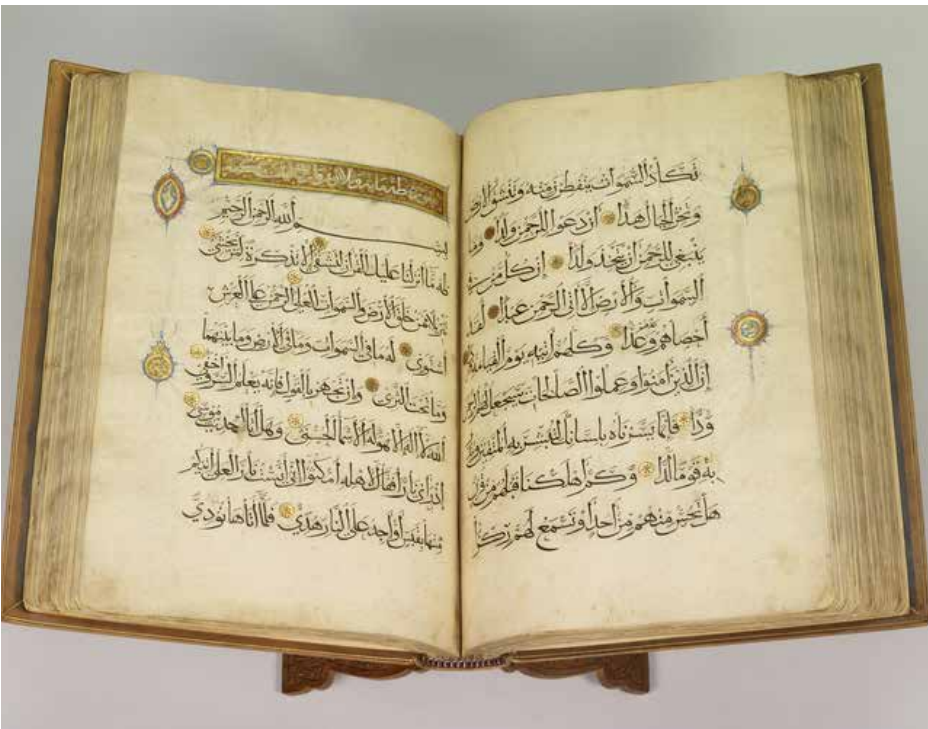 تكاد السموات يتفطرن منه وتنشق الأرض
وتخر الجبال هدا أن دعوا للرحمن ولدا وما
ينبغي للرحمن أن يتخذ ولدا إن كل من في
السموات والأرض إلا آتي الرحمن عبدا لقد
أحصاهم وعدهم عدا وكلهم آتيه يوم القيامة فردا
إن الذين آمنوا وعملوا الصالحات سيجعل لهم الرحمن
ودا فإنما يسرناه بلسانك لتبشر به المتقين وتنذر
به قوما لدا وكم أهلكنا قبلهم من قرن
هل تحس منهم من أحد أو تسمع لهم ركزا
سورة طه مائة وثلاثون
بسم الله الرحمن الرحيم
طه ما أنزلنا عليك القرآن لتشقى إلا تذكرة لمن يخشى
تنزيلا ممن خلق الأرض والسموات العلى الرحمن على العرش
استوى له ما في السموات وما في الأرض وما بينهما
وما تحت الثرى وإن تجهر بالقول فإنه يعلم السر وأخفى
الله لا إله إلا هو له الأسماء الحسنى وهل أتاك حديث موسى
إذ رأى نارا فقال لأهله امكثوا إني آنست نارا لعلي آتيكم
منها بقبس أو أجد على النار هدى فلما أتاها نودي